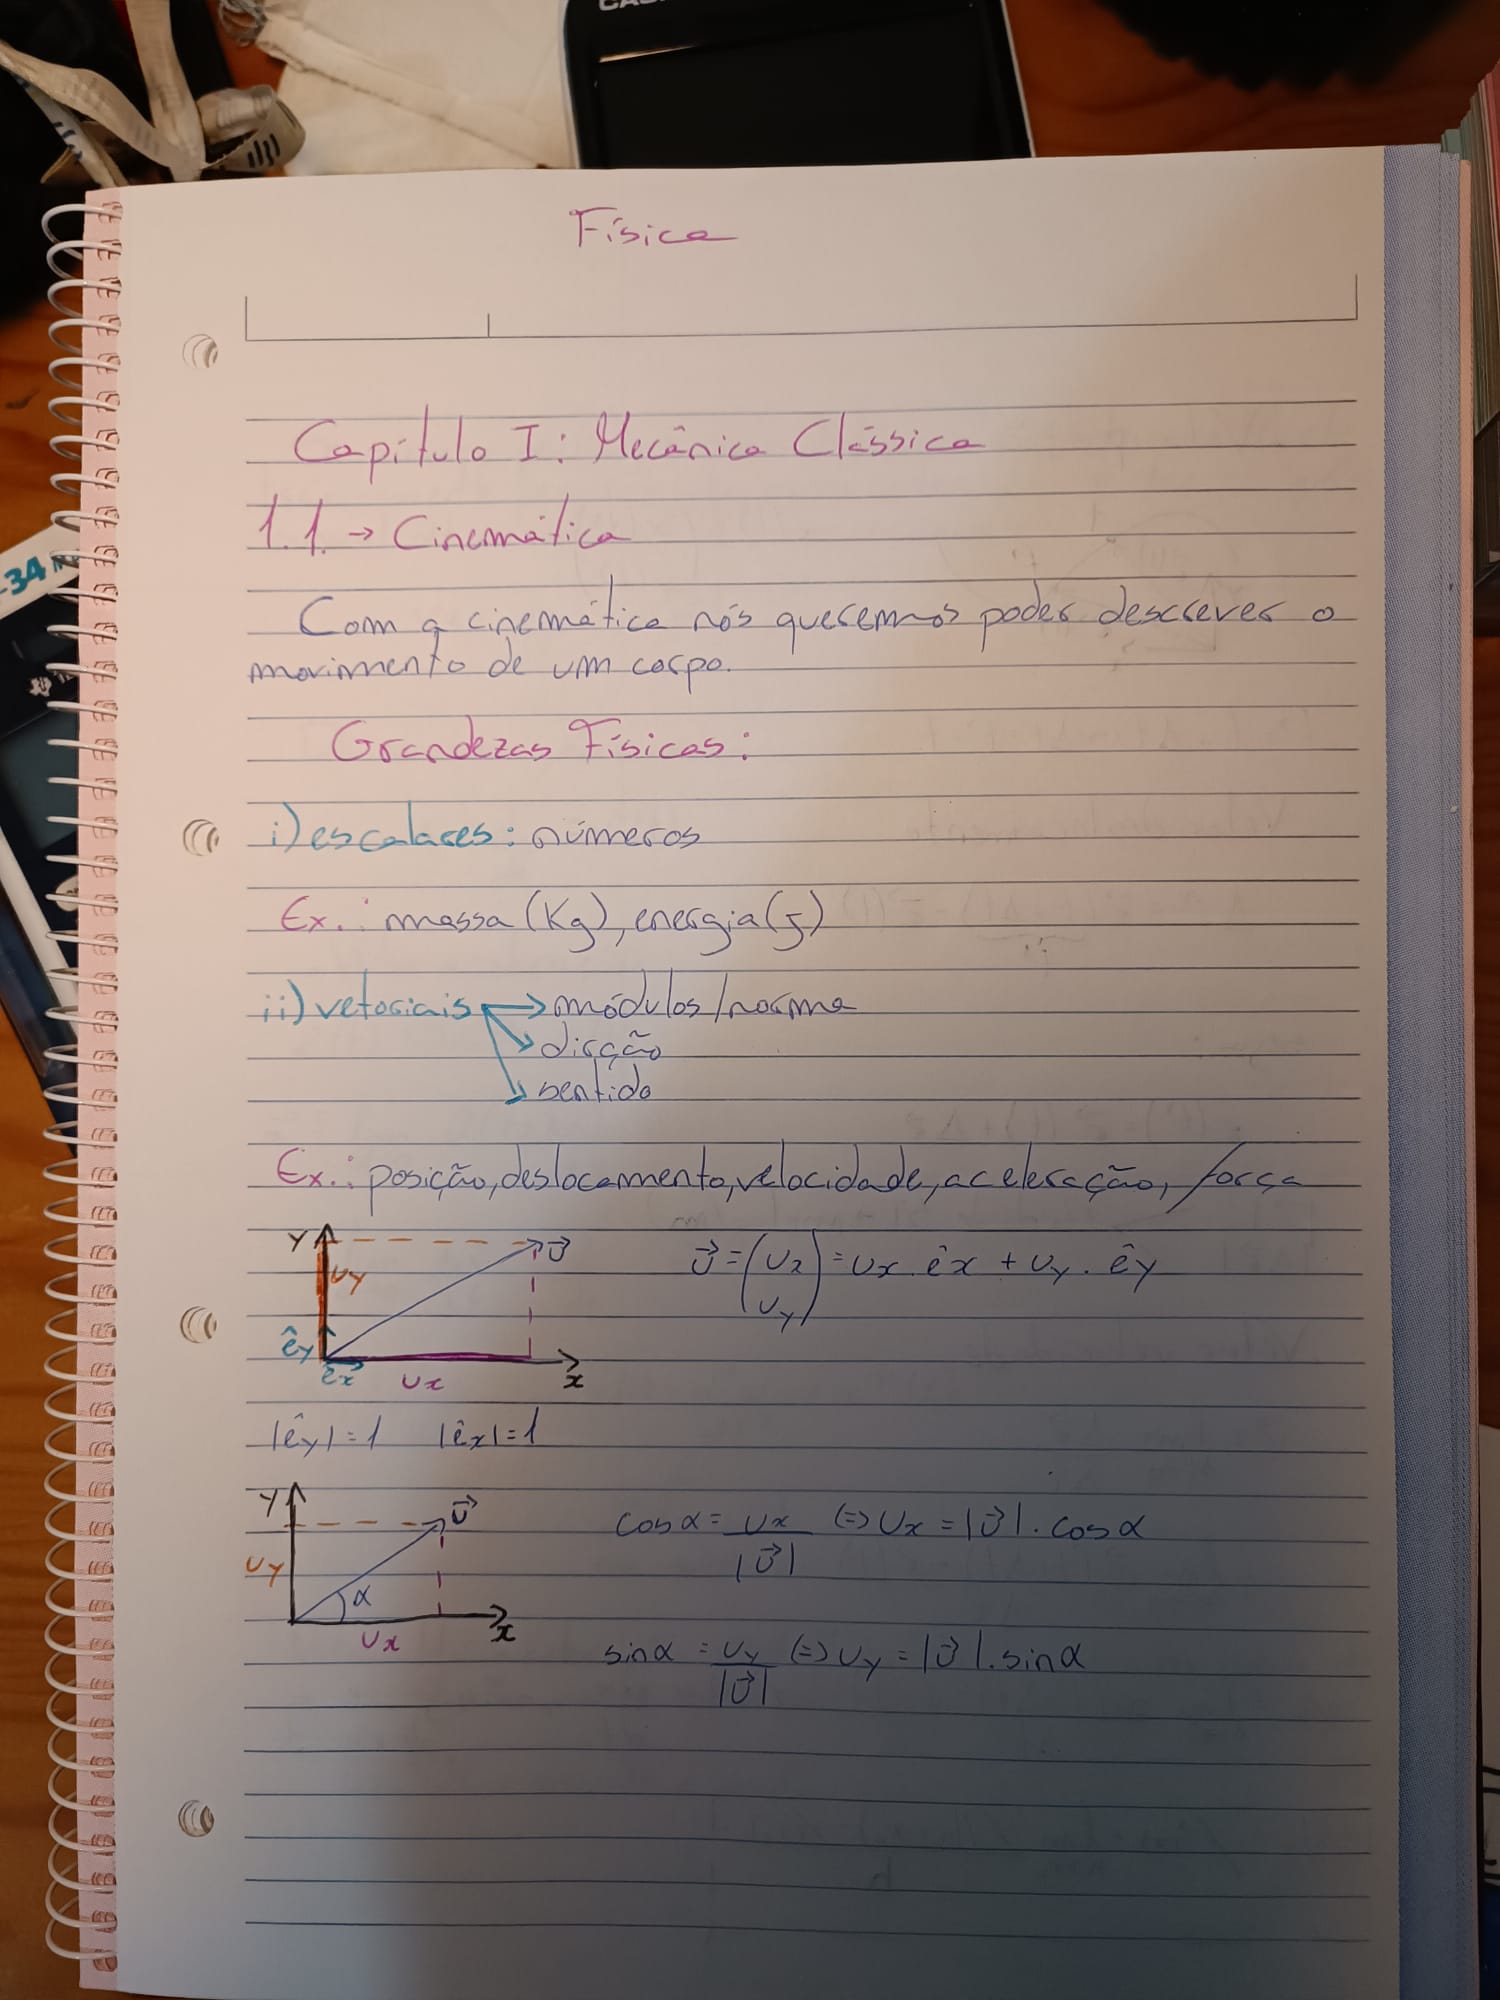 Física
Capítulo I: Mecânica Clássica
1.1. → Cinemática
Com a cinemática nós queremos poder descrever o
movimento de um corpo.
Grandezas Físicas:
i) escalares: números
Ex.: massa (Kg), energia (J)
ii) vetoriais → módulos/norma
→ dirção
→ sentido
Ex.: posição, deslocamento, velocidade, aceleração, força
y v⃗
vy
êy
êx vx x
v⃗ = (vx vy) = vx . êx + vy . êy
|êy| = 1 |êx| = 1
y v⃗
vy α
vx x
cosα = vx / |v⃗| <=> vx = |v⃗| . cosα
sinα = vy / |v⃗| <=> vy = |v⃗| . sinα